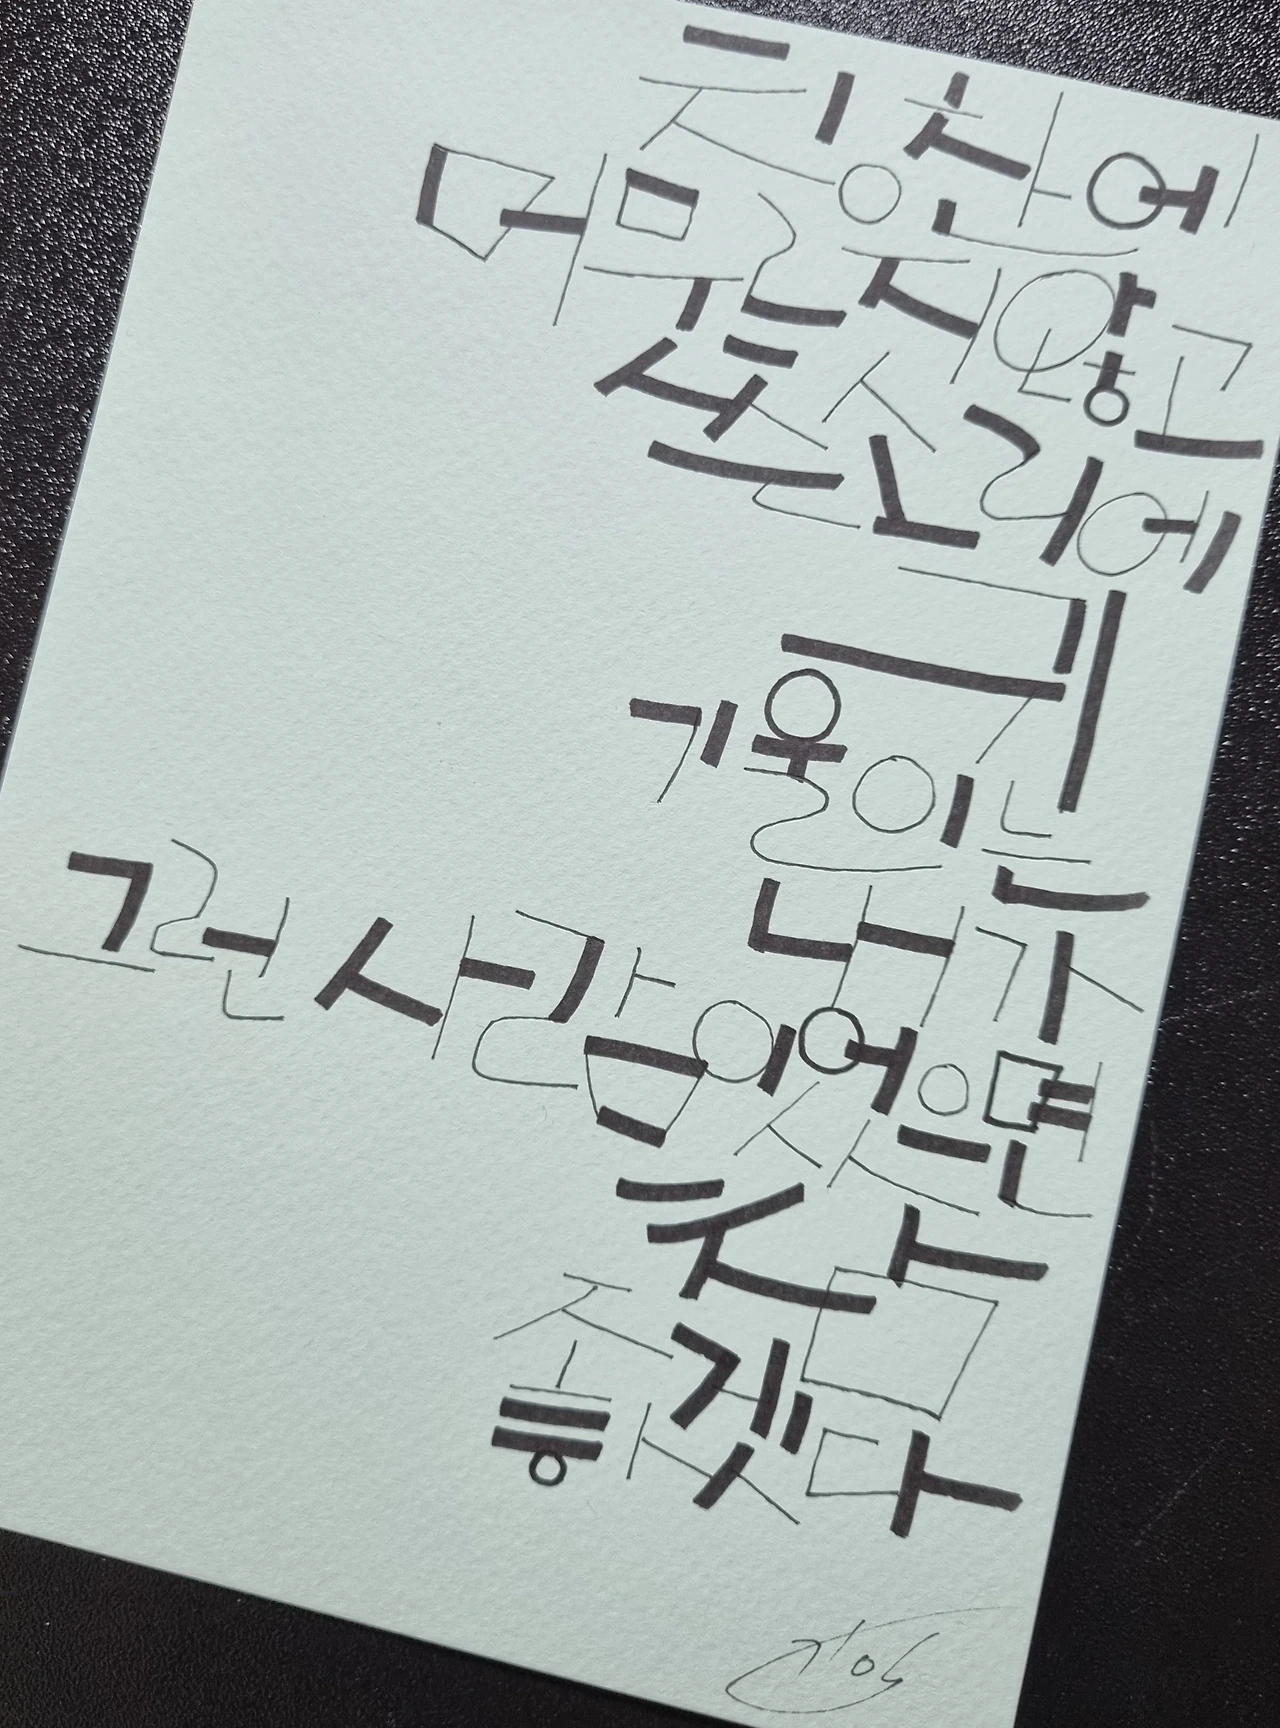 칭찬에
머물지 않고
쓴소리에
귀
기울이는
내가
그런 사람이었으면
참
좋겠다